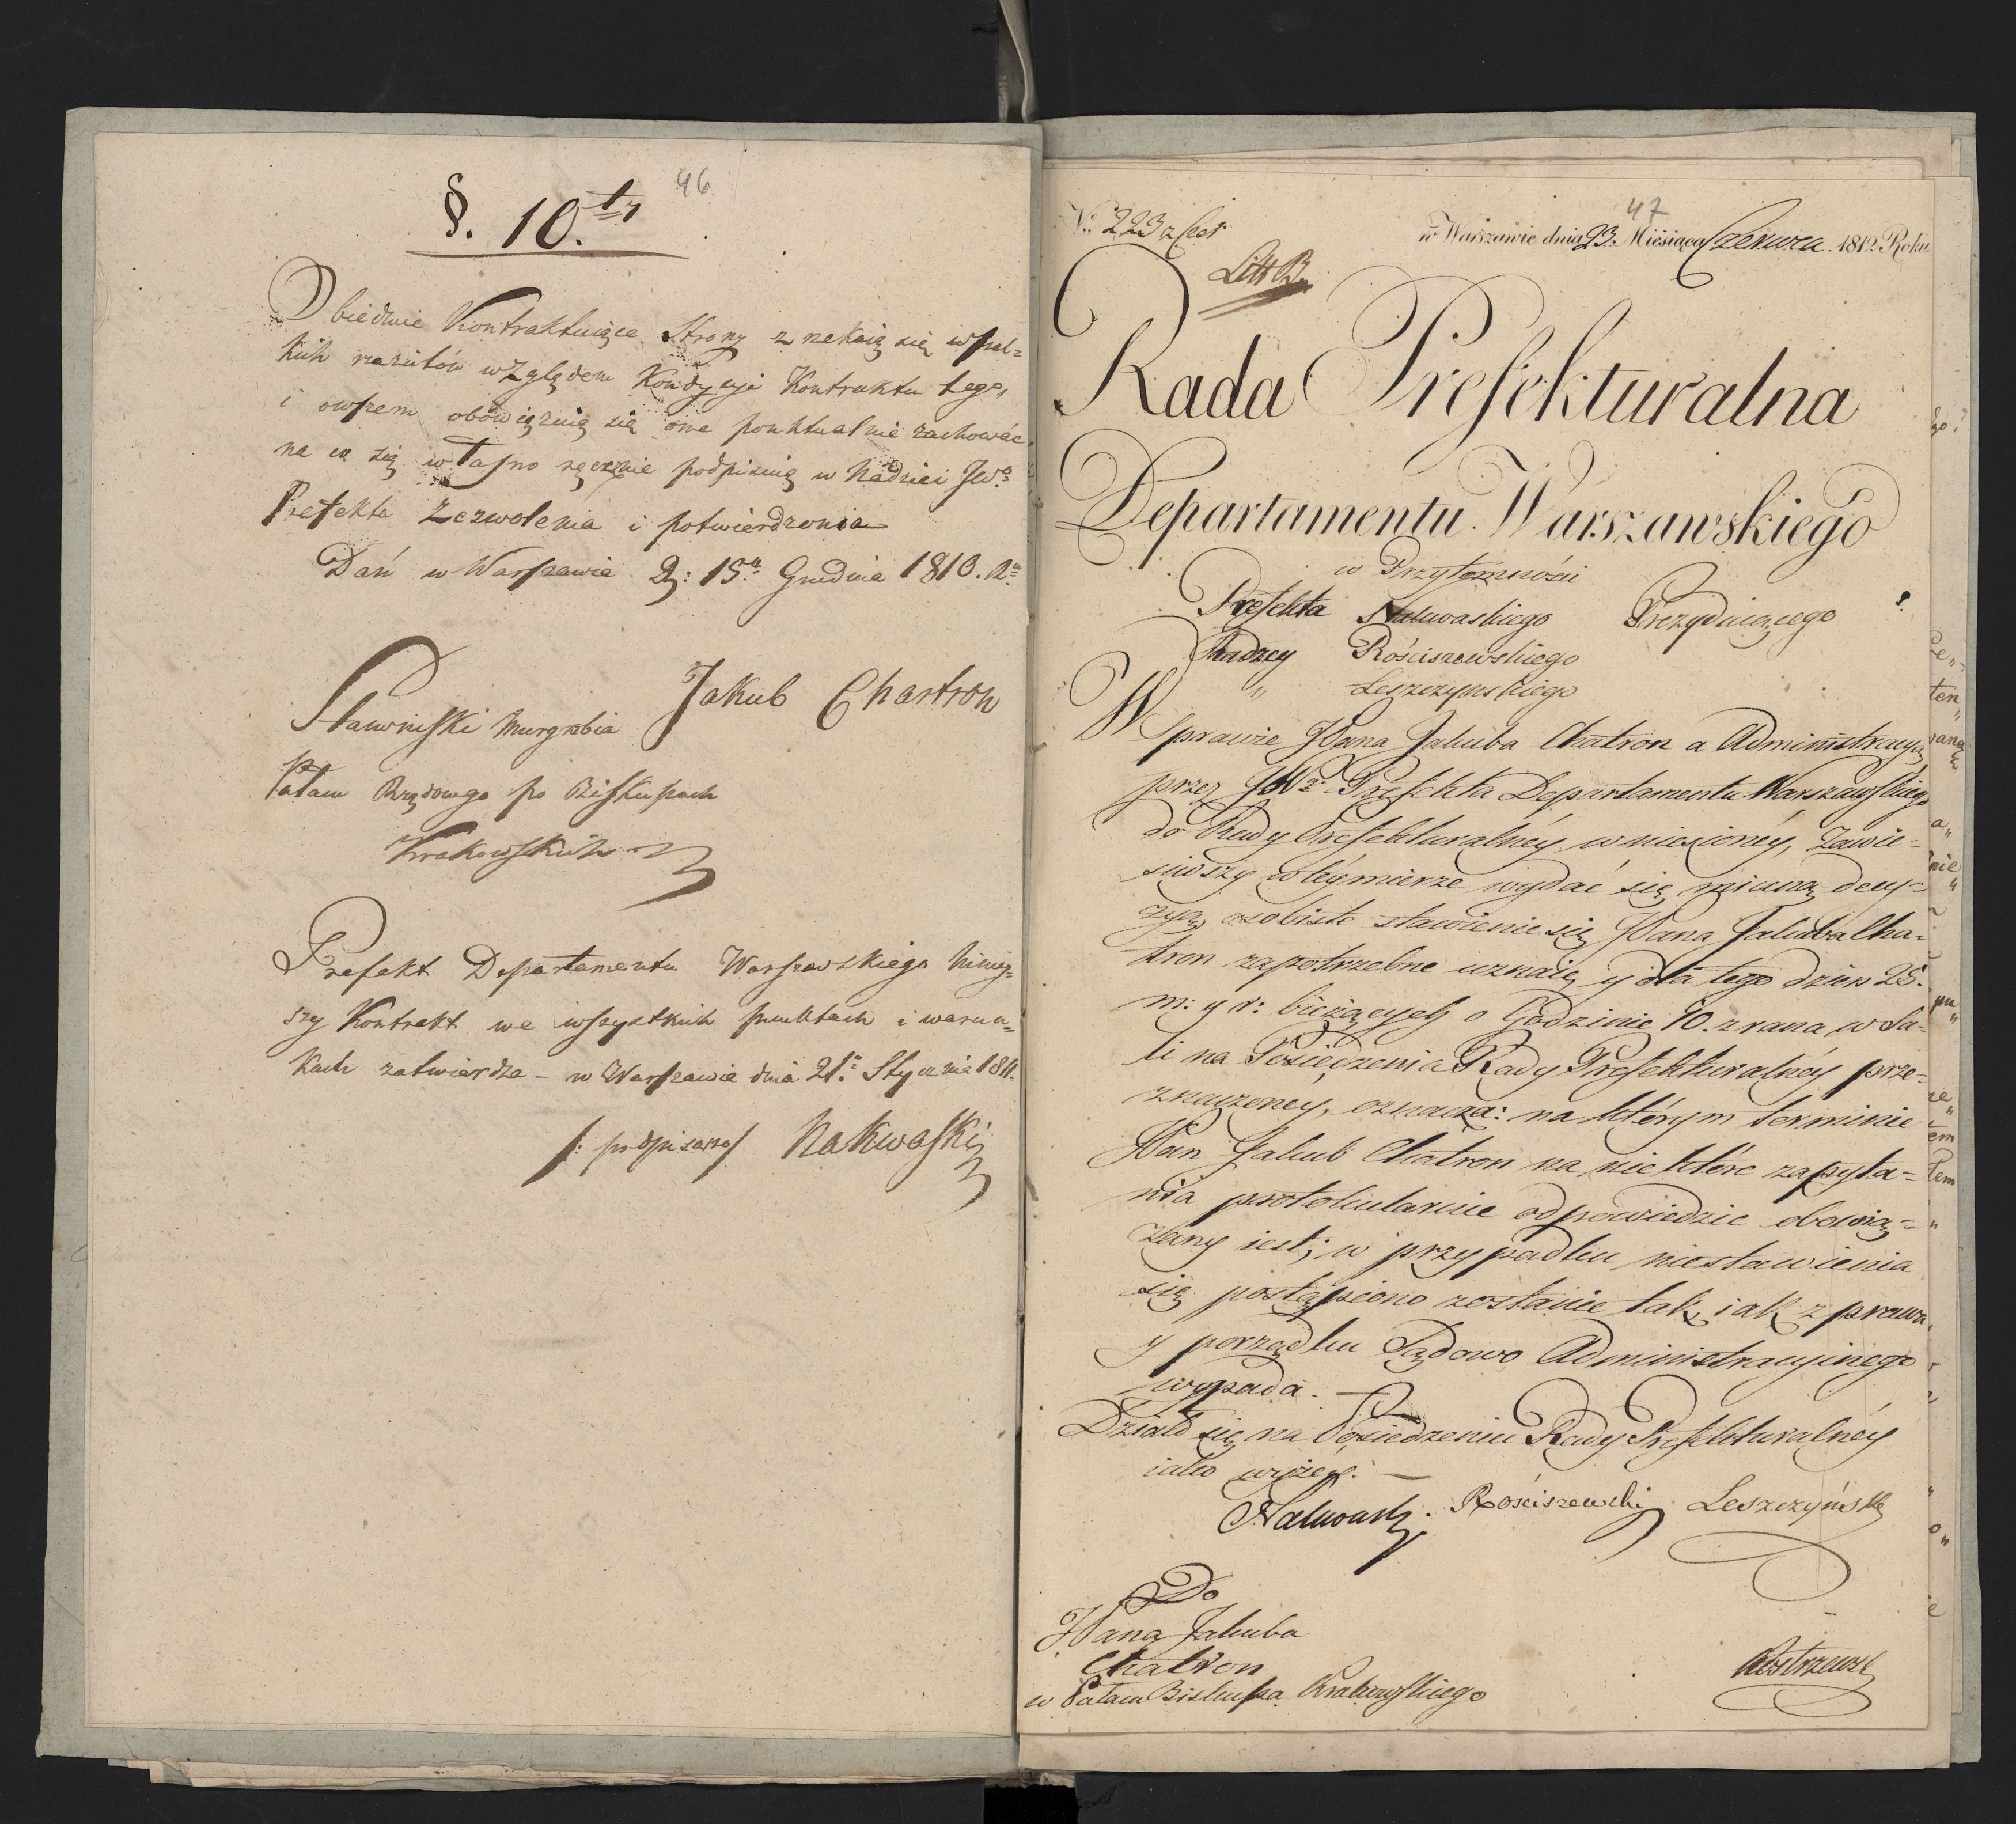 46
§. 10.ty
Obiedwie Kontraktuiące Strony zrzekaią się wszel=
kich rzazutów względem Kondycyi Kontraktu tego,
i owszem obowiązuią się one ponktualnie zachować
na co się własno ręcznie podpisuią w Nadziei JWo
Prefekta Zezwolenia i potwierdzenia
Dań w Warszawie D: 15a Grudnia 1810. Ru
Jakub Chartron
Sławinski Murgrabia
Pałacu Rządowego po Biskupach
Krakowskich
Prefekt Departamentu Warszawskiego Niniey=
szy Kontrakt we wszystkich punktach i warun=
kach zatwierdza – w Warszawie dnia 21o Stycznia 1811.
/: podpisano/ Nakwaski
47
No 223 z Ses
w Warszawie dnia 23. Miesiąca Czerwca 1812 Roku
Litt B.
Rada Prefekturalna
Departamentu Warszawskiego
w Przytomności
Prefekta Nakwaskiego Prezyduiącego
Radzcy Rościszewskiego
" Leszczynskiego
W Sprawie JPana Jakuba Chatron a Administracyą
przez JWo Prefekta Departamentu Warszawskiego
do Rady Prefekturalnéy wniesionéy, Zawie=
siwszy w téy mierze wydać się miauą decy=
zyą, osobiste stawienie się JPana Jakuba Cha=
tron zapotrzebne uznaie, y dla tego dzień 25.
m: y r: bieżących o Godzinie 10. z rana w Sa=
li na Posiedzenia Rady Prefekturalnéy prze=
znaczoney, oznacza: na którym terminie
JPan Jakub Chatron na niektóre zapyta=
nia protokularnie odpowiedzie obowią=
zany iest; w przypadku niestawienia
się postąpiono zostanie tak, iak z prawa
y porządku Sądowo Administracyinego
wypada. —
Działo się na Posiedzeniu Rady Prefekturalnéy
iako wyżey. —
Nakwaski. Rościszewski Leszczyński
Do
JPana Jakuba
Chatron
w Pałacu Biskupa Krakowskiego